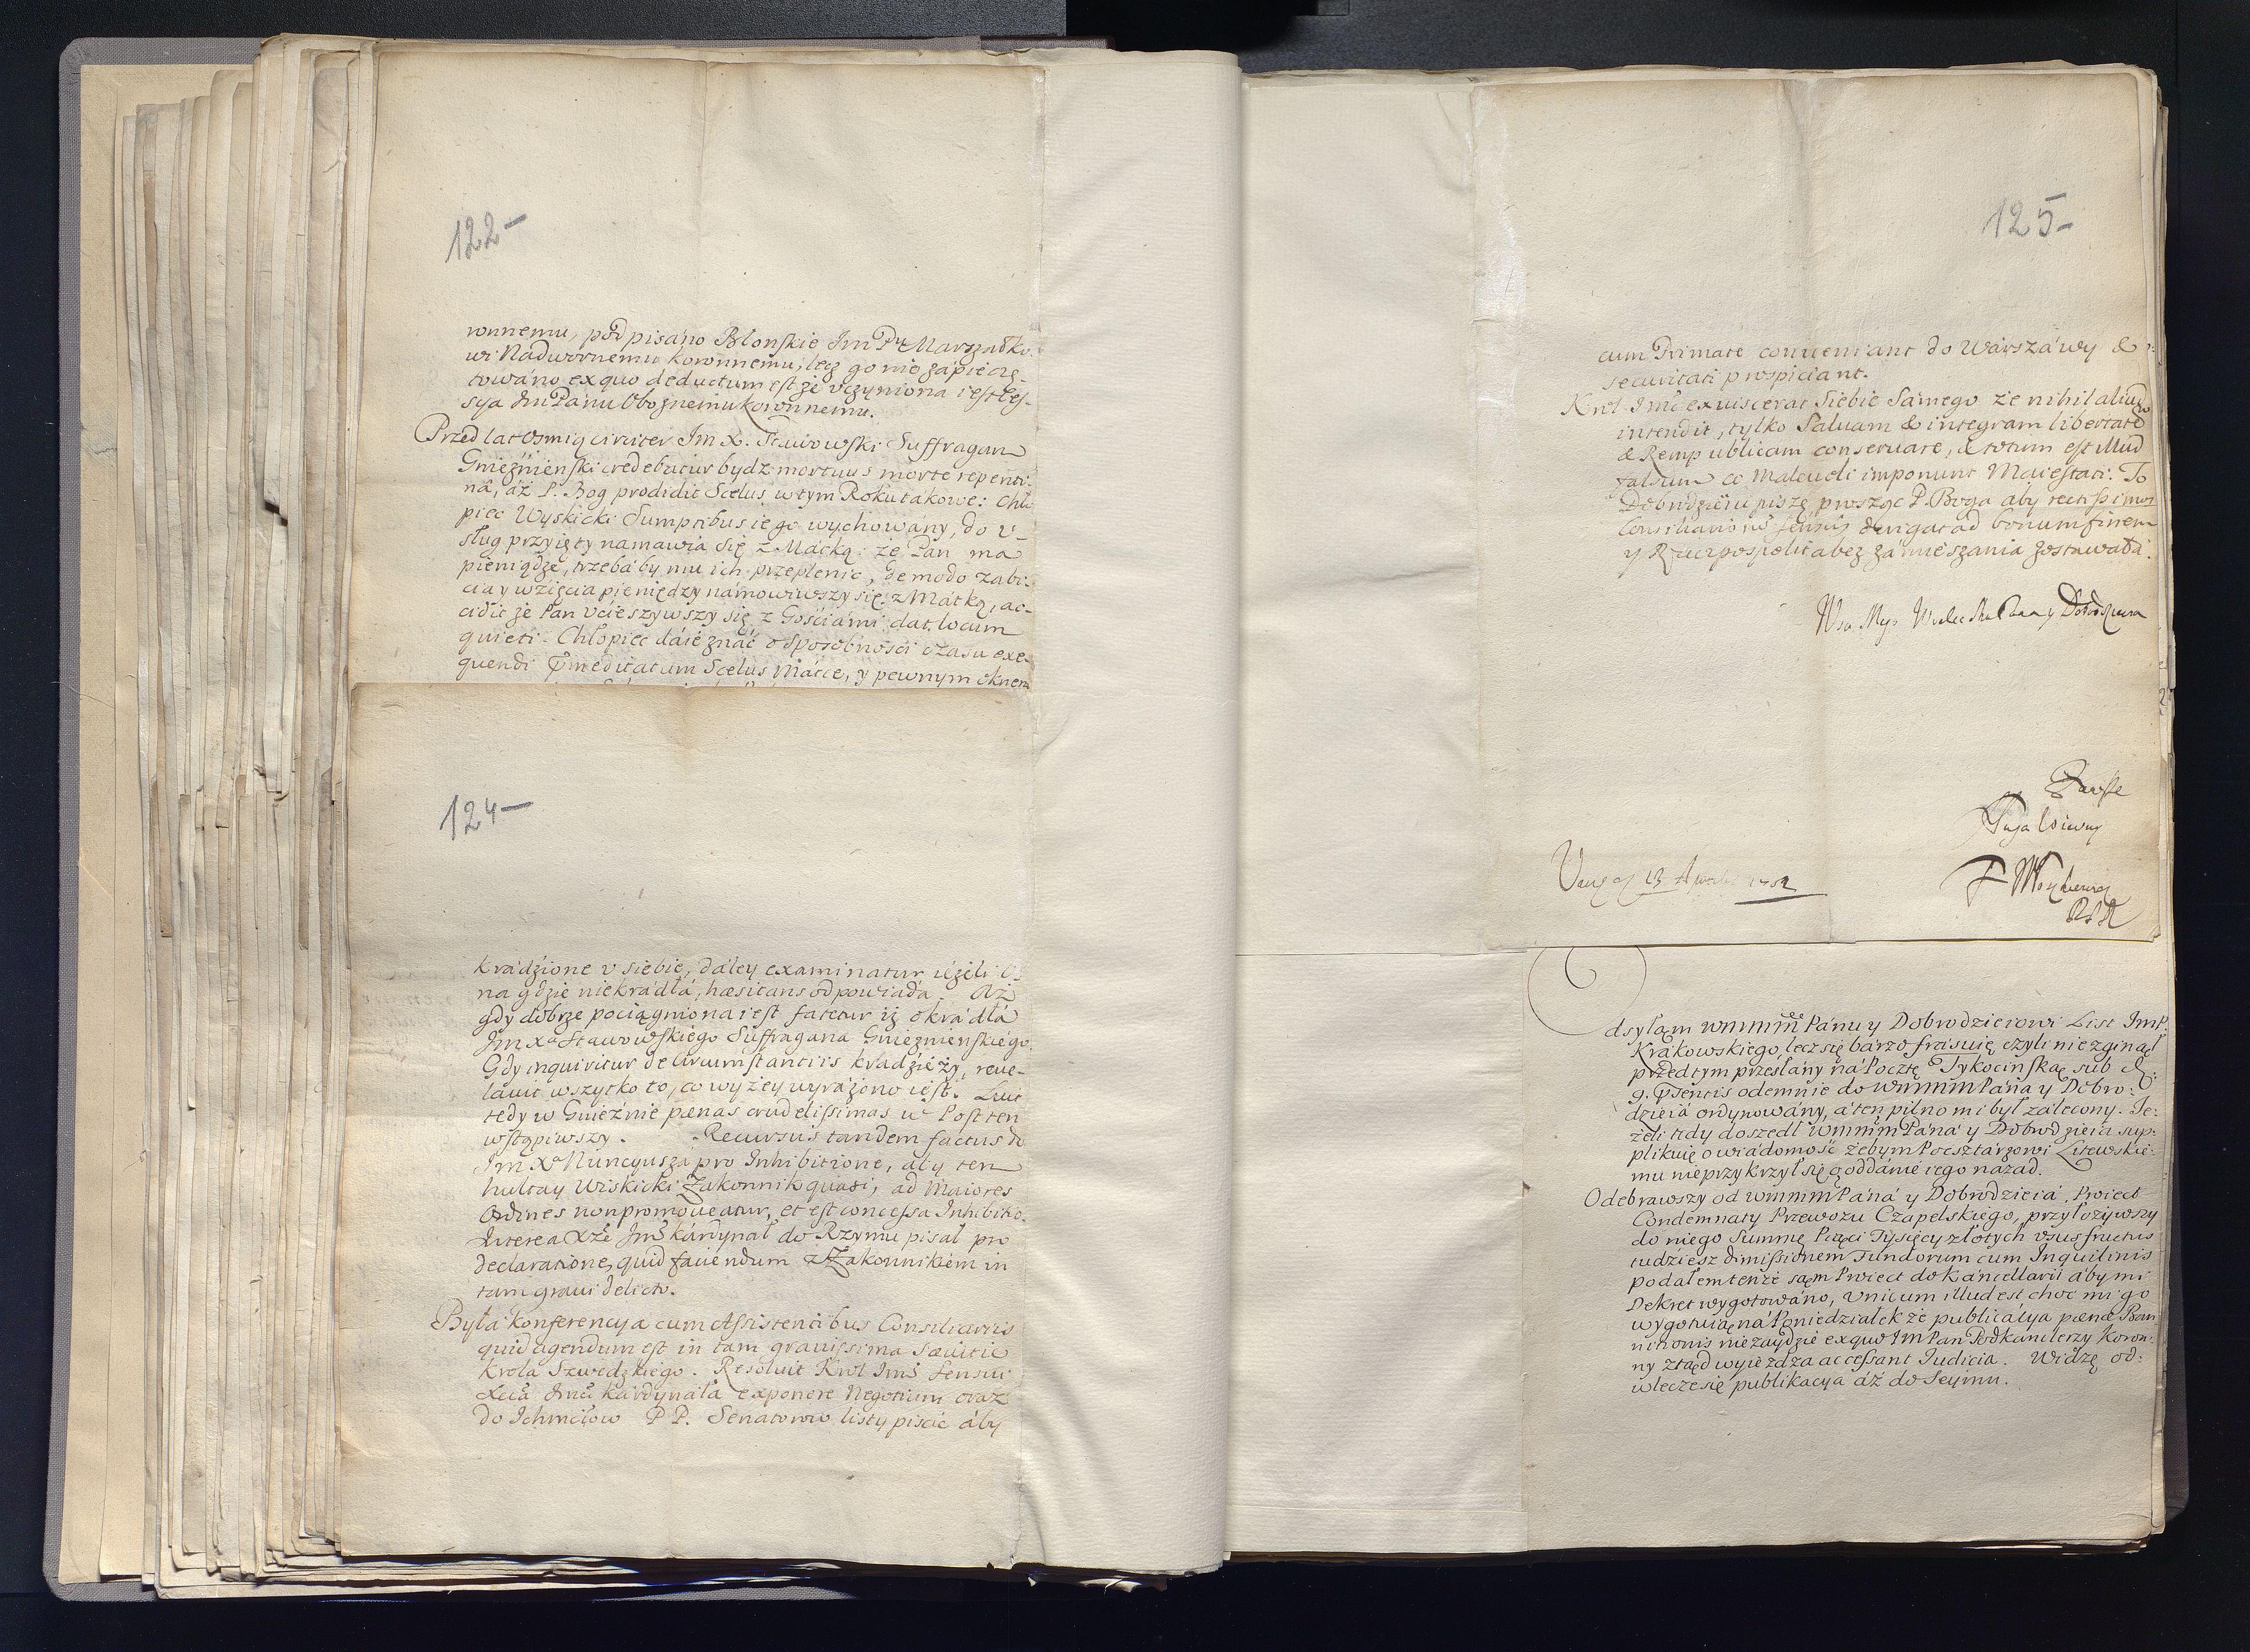 122-
wnnemu, podpisano Blonskie Im Pu Marszałko-
wi Nadwornemu koronnemu, lecz go nie zapieczę-
towano, ex quo deductum est że uczyniona iest ces-
sya Im Panu Oboznemu koronnemu.
Przed lat osmią circiter Im X. Stawowski Suffragan
Gnieznienski credebatur bydz mortuus morte repenti-
na, aż P. Bog prodidit Scelus w tym Roku takowe: Chło
piec Wyskicki Sumptibus iego wychowany, do u-
sług przyięty namawia się z Matką: że Pan ma
pieniądze, trzebaby mu ich przeplenic, de modo zabi-
cia y wzięcia pieniędzy namowiwszy się z Matką, ac-
cidit że Pan ucieszywszy się z Gosciami dat locum
quieti. Chłopiec daie znać o sposobnosci czasu exe-
quendi præmeditatum Scelus Matce, y pewnym oknem
124-
kradzione u siebie, daley examinatur ieżeli o-
na gdzie niekradła, hæsitans odpowiada. Aż
gdy dobrze pociągniona iest fatetur iż okradła
Im Xa Stawowskiego Suffragana Gnieznienskiego.
Gdy inquiritur de circumstantiis kradzieży, reve-
lavit wszytko to, co wyżey wyrażono iest. Luit
tedy w Gnieznie pœnas crudelissimas w Post ten
wstąpiwszy. Recursus tandem factus do
Im Xa Nuncyusza pro Inhibitione, aby ten
hultay Wiskicki Zakonnik quasi, ad Maiores
Ordines non promoveatur, et est concessa Inhibitio.
Interea Xże Jmć kardynał do Rzymu pisał pro
declaratione, quid faciendum z Zakonnikiem in
tam gravi delicto.
Była konferencya cum Assistentibus Consiliariis
quid agendum est in tam gravissima sævitie
krola Szwedzkiego. Resolvit Krol Imć Sensui
Xcia Jmci kardynała exponere Negotium oraz
do Ichmciow P P. Senatorow listy pisać aby
125-
cum Primate conveniant do Warszawy &
securitati prospiciant.
Krol Imć exviscerat Siebie Samego że nihil aliud
intendit, tylko Salvam & integram libertatē
& Rempublicam conservare, & totum est Illud
falsum co Malevoli imponunt Maiestati. To
Dobrodzieiu piszę prosząc P. Boga aby rectissimos
Consiliariorū sensus dirigat ad bonum finem
y Rzeczpospolita bez zamieszania zostawała.
Pana y Dobrodzieia
Zawsze
Sługa
13 Aprilis 1702
dsyłam wmmm Panu y Dobrodzieiowi List ImP.
Krakowskiego, lecz się barzo frasuię czyli nie zginął
przed tym przesłany na Pocztę Tykocinską sub d:
9. Præsentis odemnie do wmmm Pana y Dobro-
dzieia ordynowany, a ten pilno mi był zalecony. Je-
żeli tedy doszedł wmmm Pana y Dobrodzieia sup-
plikuię o wiadomość żebym Pocsztarzowi Litewskie-
mu nieprzykrzył się o oddanie iego nazad.
Odebrawszy od wmmm Pana y Dobrodzieia, Proiect
Condemnaty Przewozu Czapelskiego, przyłożywszy
do niego Summę Pięci Tysięcy złotych ususfructus
tudziesz dimissionem Fundorum cum Inquilinis
podałem tenże sąm Proiect do Kancellarii aby mi
Dekret wygotowano, Unicum illud est choć mi go
wygotuią na Poniedziałek że publicacya pœnæ Ban-
nitionis nie zaydzie ex quo Im Pan Podkanclerzy Koron-
ny ztąd wyieżdza accessant Iudicia. Widzę od-
wlecze się publikacya aż do Seymu.